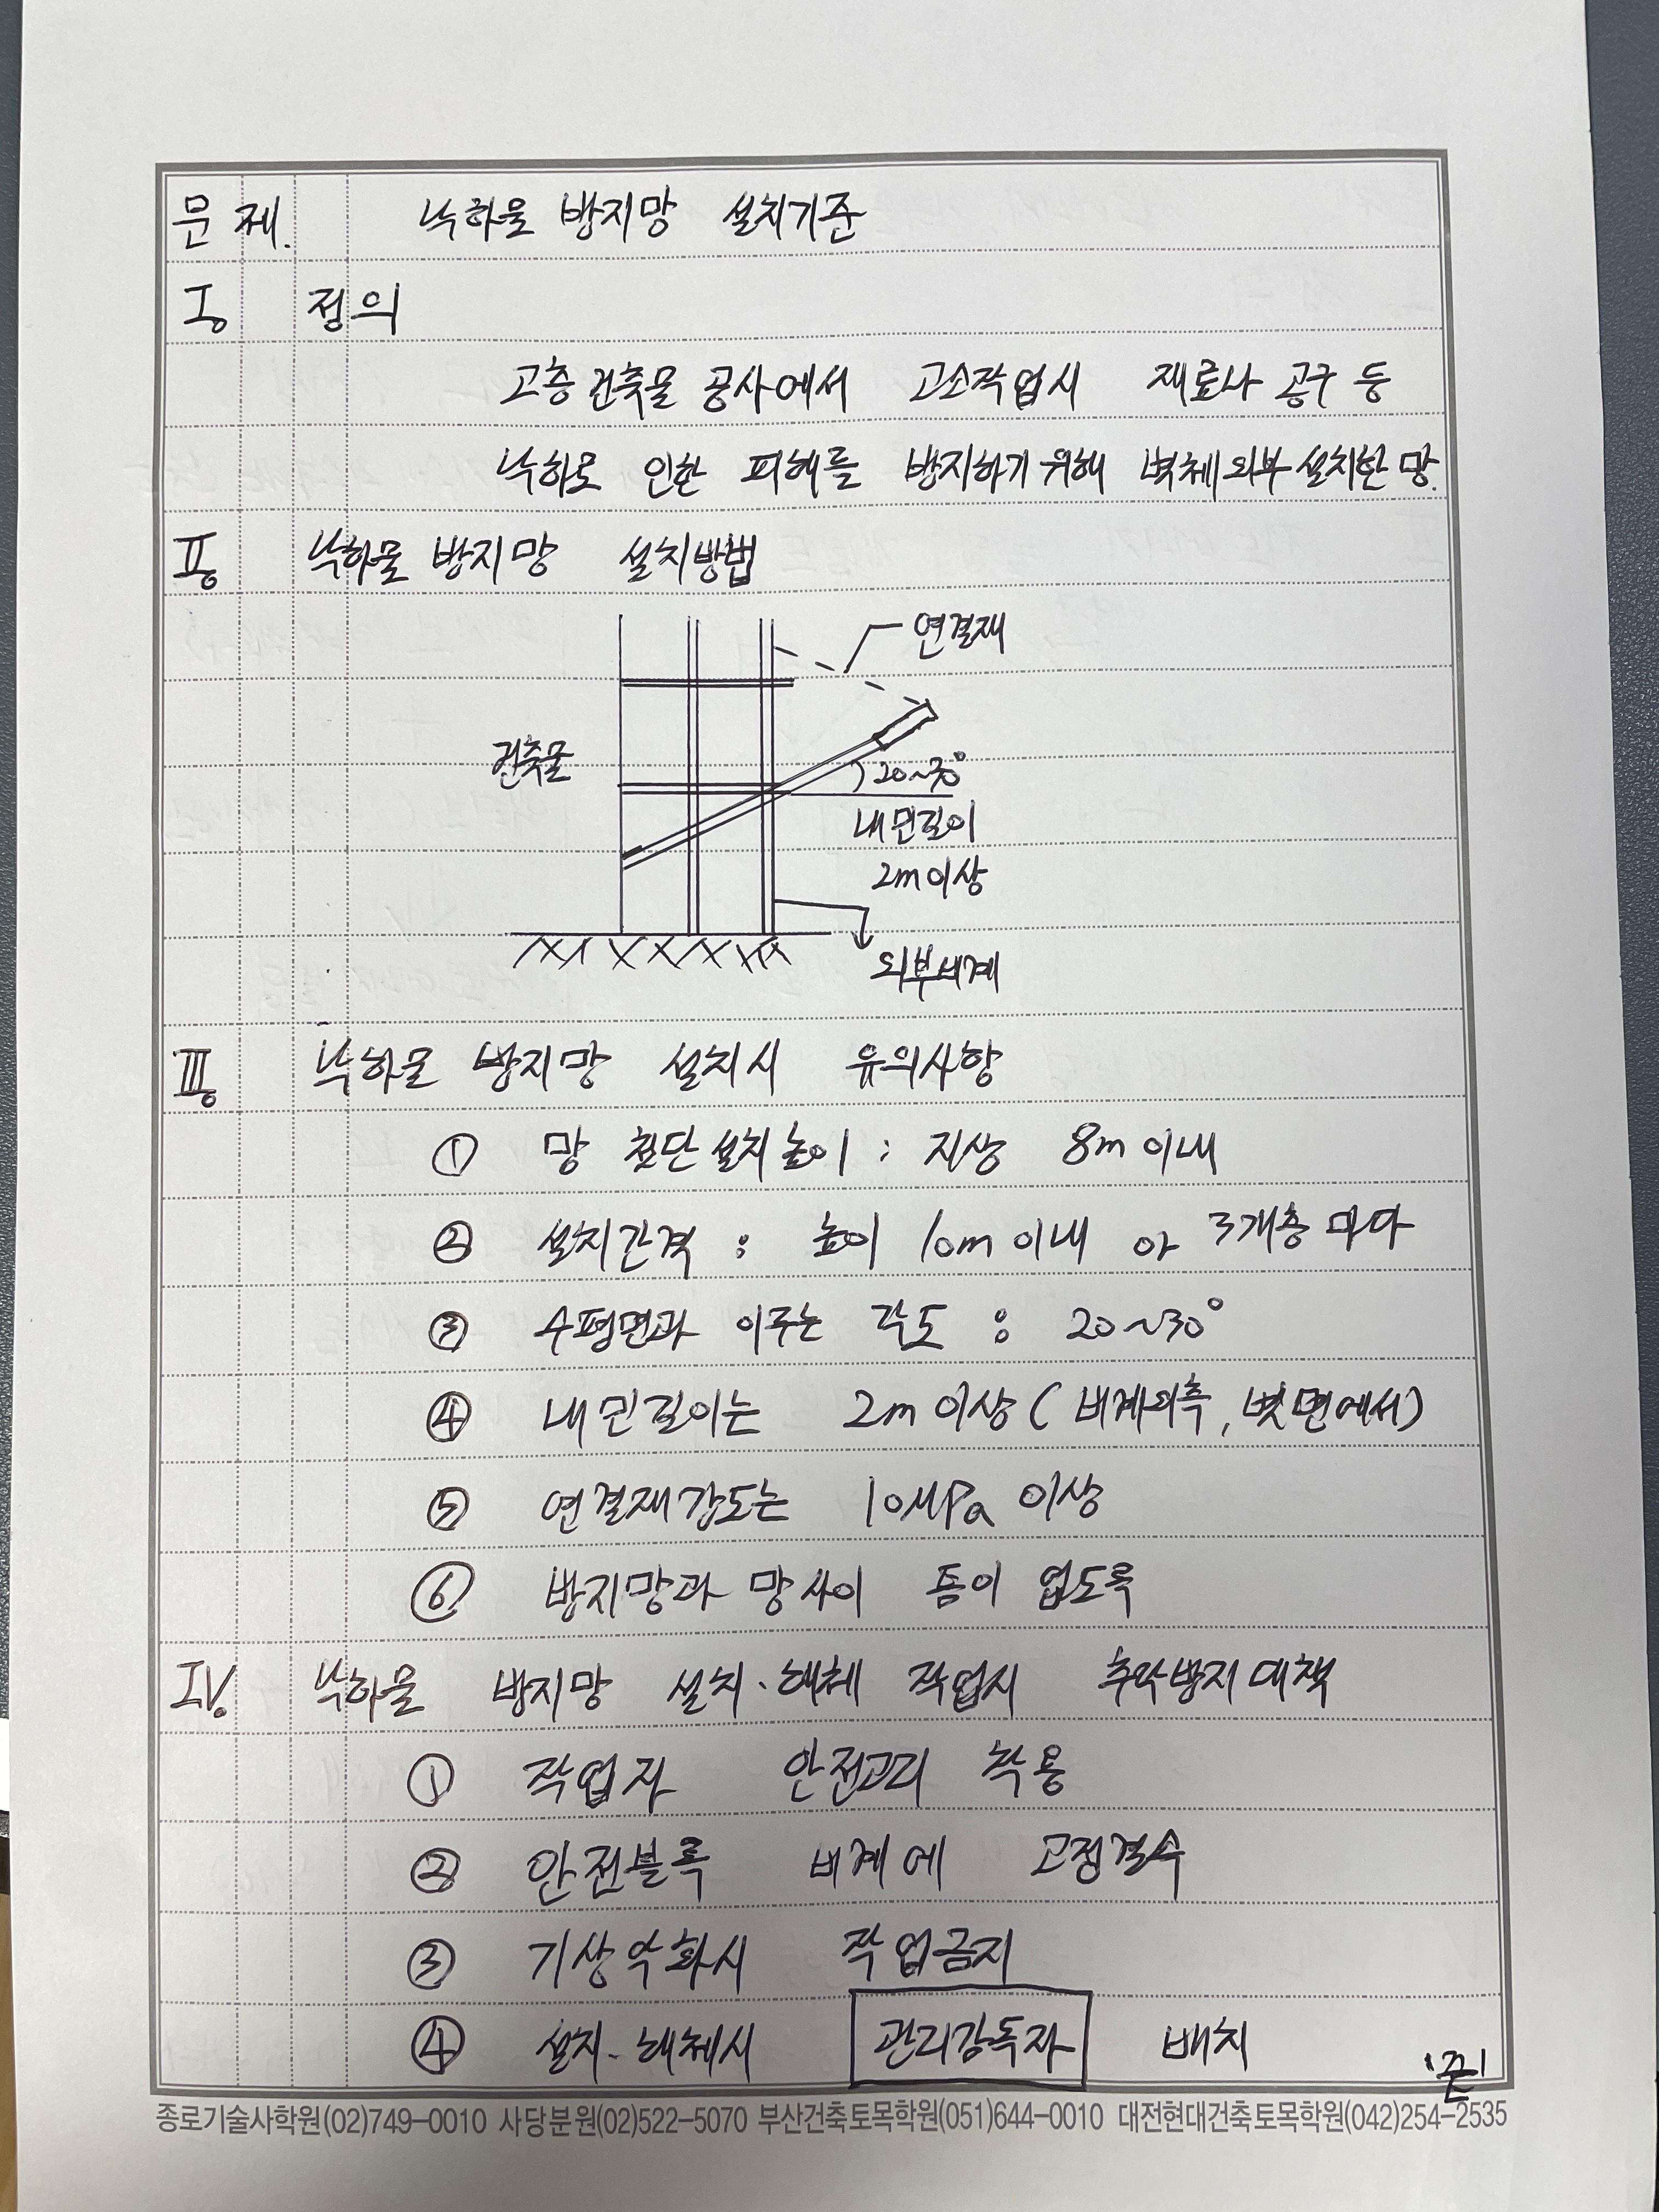 문 제. 낙하물 방지망 설치기준
I. 정의
고층건축물 공사에서 고소작업시 재료나 공구 등
낙하로 인한 피해를 방지하기 위해 벽체외부 설치한 망.
II. 낙하물 방지망 설치방법
연결재
건축물
20~30°
내민길이
2m 이상
외부비계
III. 낙하물 방지망 설치시 유의사항
① 망 첫단 설치높이 : 지상 8m 이내
② 설치간격 : 높이 10m 이내 or 3개층 마다
③ 수평면과 이루는 각도 : 20~30°
④ 내민길이는 2m 이상 (비계외측, 벽면에서)
⑤ 연결재강도는 10MPa 이상
⑥ 방지망과 망사이 틈이 없도록
IV. 낙하물 방지망 설치·해체 작업시 추락방지대책
① 작업자 안전고리 착용
② 안전블록 비계에 고정결속
③ 기상악화시 작업금지
④ 설치·해체시 관리감독자 배치
'끝'
종로기술사학원(02)749-0010 사당분원(02)522-5070 부산건축토목학원(051)644-0010 대전현대건축토목학원(042)254-2535